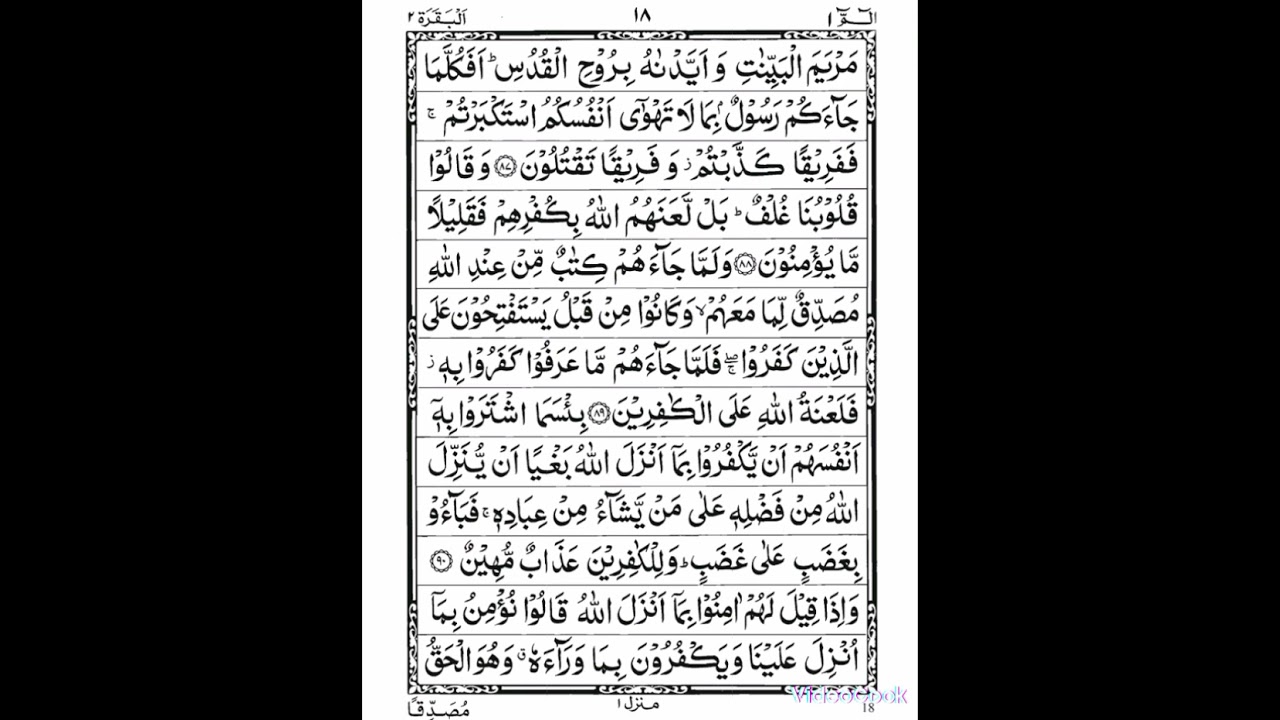 الٓمّٓ ١ ١٨ اَلْبَقَرَة ٢
مَرْيَمَ الْبَيِّنٰتِ وَ اَيَّدْنٰهُ بِرُوْحِ الْقُدُسِ ؕ اَفَكُلَّمَا
جَآءَكُمْ رَسُوْلٌۢ بِمَا لَا تَهْوٰٓى اَنْفُسُكُمُ اسْتَكْبَرْتُمْ ۚ
فَفَرِيْقًا كَذَّبْتُمْ ز وَ فَرِيْقًا تَقْتُلُوْنَ ۝٨٧ وَ قَالُوْا
قُلُوْبُنَا غُلْفٌ ؕ بَلْ لَّعَنَهُمُ اللّٰهُ بِكُفْرِهِمْ فَقَلِيْلًا
مَّا يُؤْمِنُوْنَ ۝٨٨ وَلَمَّا جَآءَهُمْ كِتٰبٌ مِّنْ عِنْدِ اللّٰهِ
مُصَدِّقٌ لِّمَا مَعَهُمْ ۙ وَكَانُوْا مِنْ قَبْلُ يَسْتَفْتِحُوْنَ عَلَى
الَّذِيْنَ كَفَرُوْا ۖۚ فَلَمَّا جَآءَهُمْ مَّا عَرَفُوْا كَفَرُوْا بِهٖ ز
فَلَعْنَةُ اللّٰهِ عَلَى الْكٰفِرِيْنَ ۝٨٩ بِئْسَمَا اشْتَرَوْا بِهٖٓ
اَنْفُسَهُمْ اَنْ يَّكْفُرُوْا بِمَآ اَنْزَلَ اللّٰهُ بَغْيًا اَنْ يُّنَزِّلَ
اللّٰهُ مِنْ فَضْلِهٖ عَلٰى مَنْ يَّشَآءُ مِنْ عِبَادِهٖ ۚ فَبَآءُوْ
بِغَضَبٍ عَلٰى غَضَبٍ ؕ وَلِلْكٰفِرِيْنَ عَذَابٌ مُّهِيْنٌ ۝٩٠
وَاِذَا قِيْلَ لَهُمْ اٰمِنُوْا بِمَآ اَنْزَلَ اللّٰهُ قَالُوْا نُؤْمِنُ بِمَآ
اُنْزِلَ عَلَيْنَا وَيَكْفُرُوْنَ بِمَا وَرَآءَهٗ ۗ وَهُوَ الْحَقُّ
مُصَدِّقًا منزل ١ 18